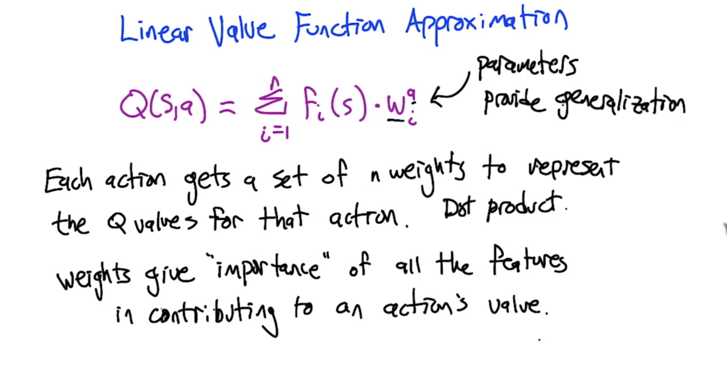 Linear Value Function Approximation
Q(s,a) = Σ_{i=1}^{n} f_i(s) · w_i^a
parameters
provide generalization
Each action gets a set of n weights to represent
the Q values for that action. Dot product.
weights give "importance" of all the features
in contributing to an action's value.